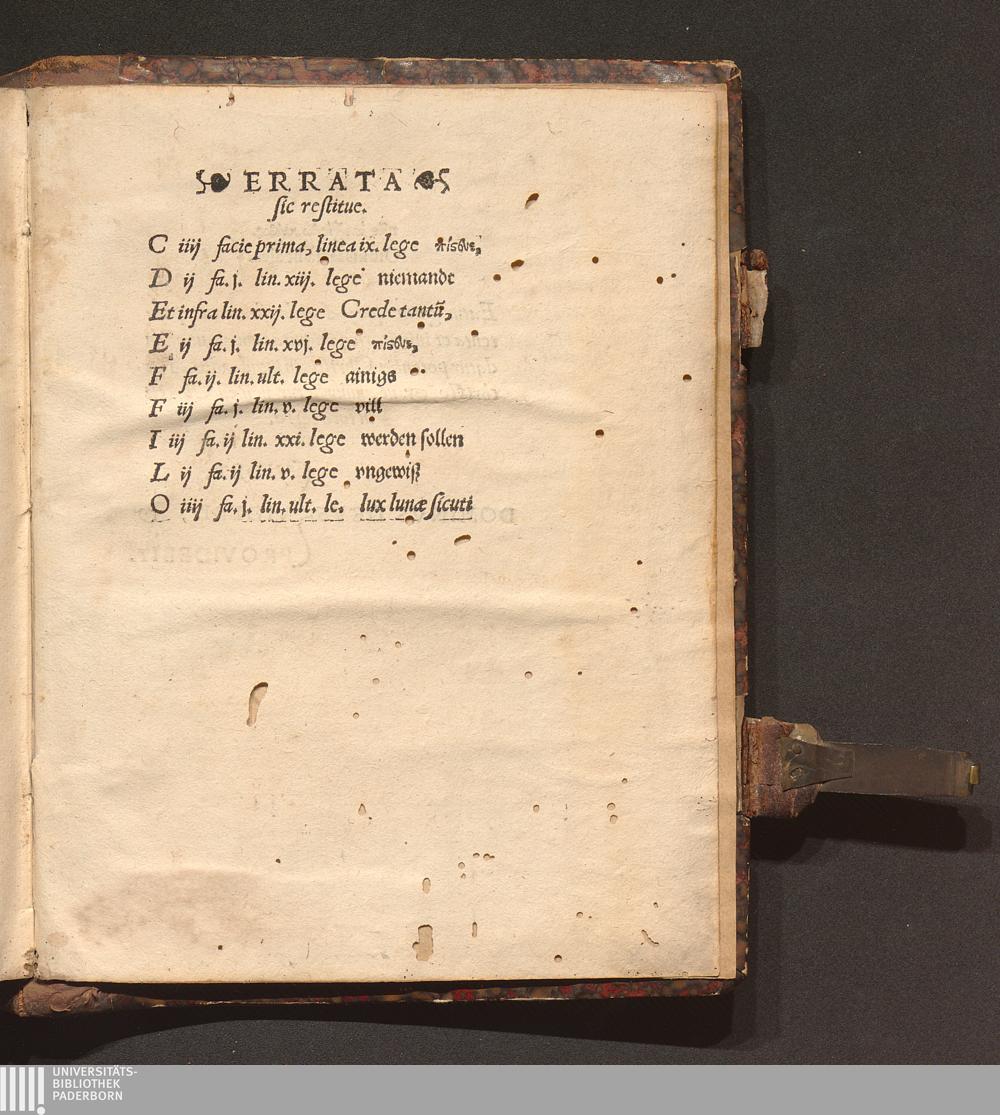 ERRATA
sic restitue.
C iiij facie prima, linea ix. lege
D ij fa. j. lin. xiij. lege niemande
Et infra lin. xxij. lege Crede tantũ,
E ij fa. j. lin. xvj. lege
F fa. ij. lin. ult. lege ainigs
F iij fa. j. lin. v. lege vill
I iij fa. ij lin. xxi. lege werden sollen
L ij fa. ij lin. v. lege vngewiß
O iiij fa. j. lin. ult. le. lux lunæ sicuti
UNIVERSITÄTS-
BIBLIOTHEK
PADERBORN